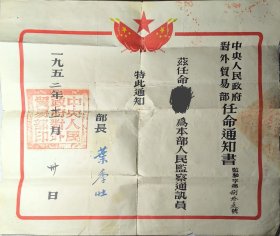 中央人民政府
對外貿易部 任命通知書
茲任命 為本部人民監察通訊員
特此通知
部長 葉季壯
一九五二年 月 卅日